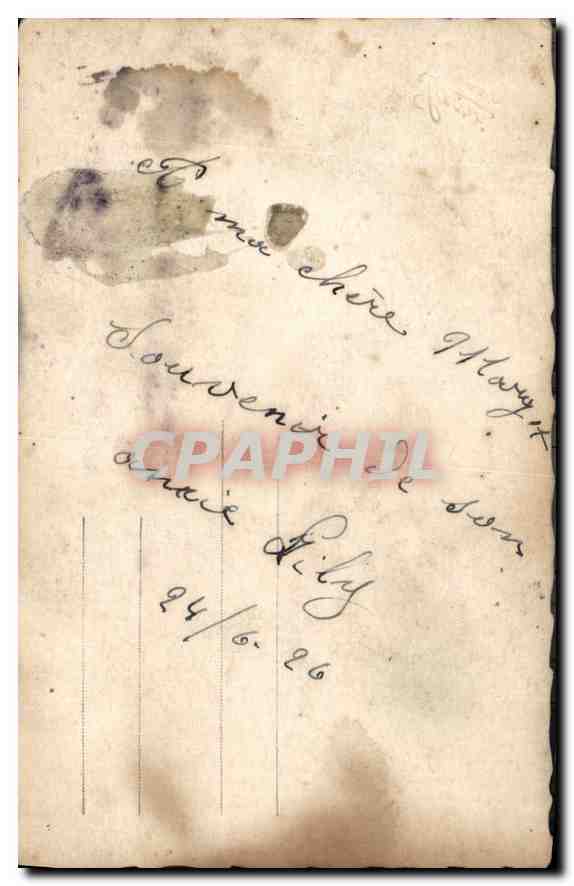 A ma chère Margot
Souvenir de son
amie Lily
24/6. 26
CPAPHIL